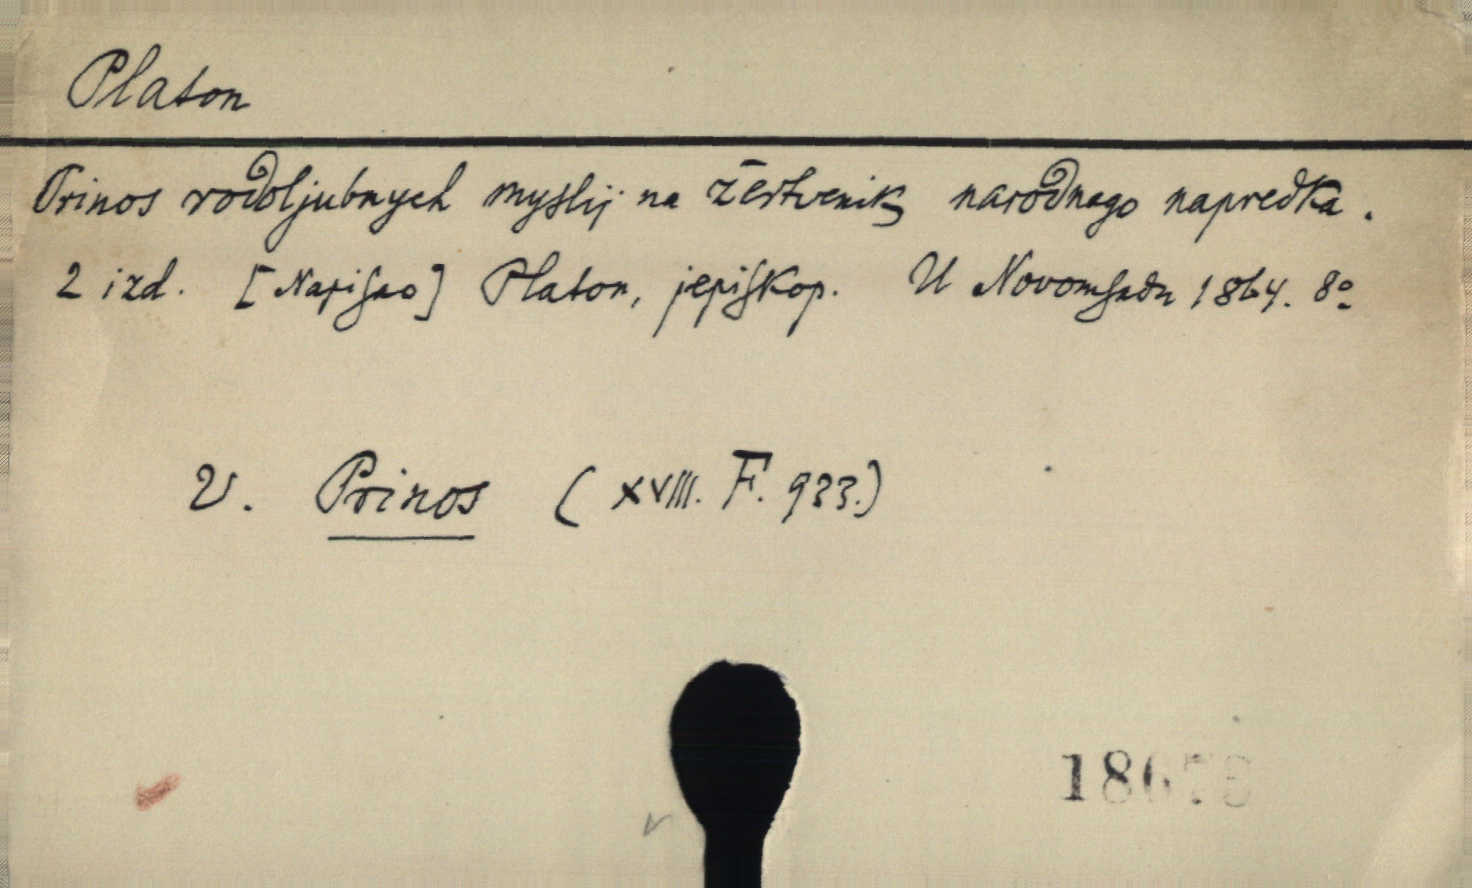 Platon
Prinos rodoljubnych myslij na žertvenik narodnago napredka.
2 izd. [Napisao] Platon, jepiskop. U Novomsadu 1864. 8º
V. Prinos (XVIII. F. 933.)